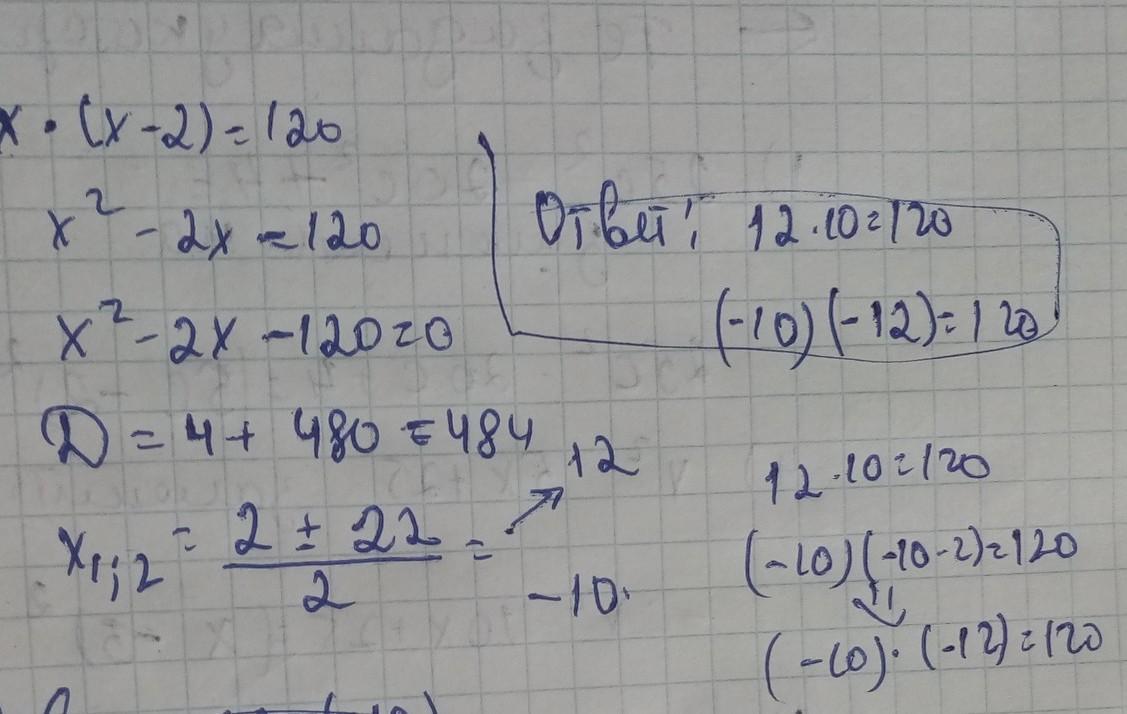 x · (x-2)=120
x² - 2x = 120
x² - 2x - 120=0
D = 4 + 480 = 484
x₁;₂ = (2 ± 22)/2 = 12
-10.
Ответ: 12·10=120
(-10)(-12)=120
12·10=120
(-10)(-10-2)=120
(-10)·(-12)=120